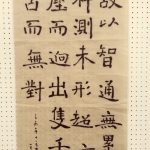 故以智通無累
神測未形超六
塵而迥出隻千
古而無對